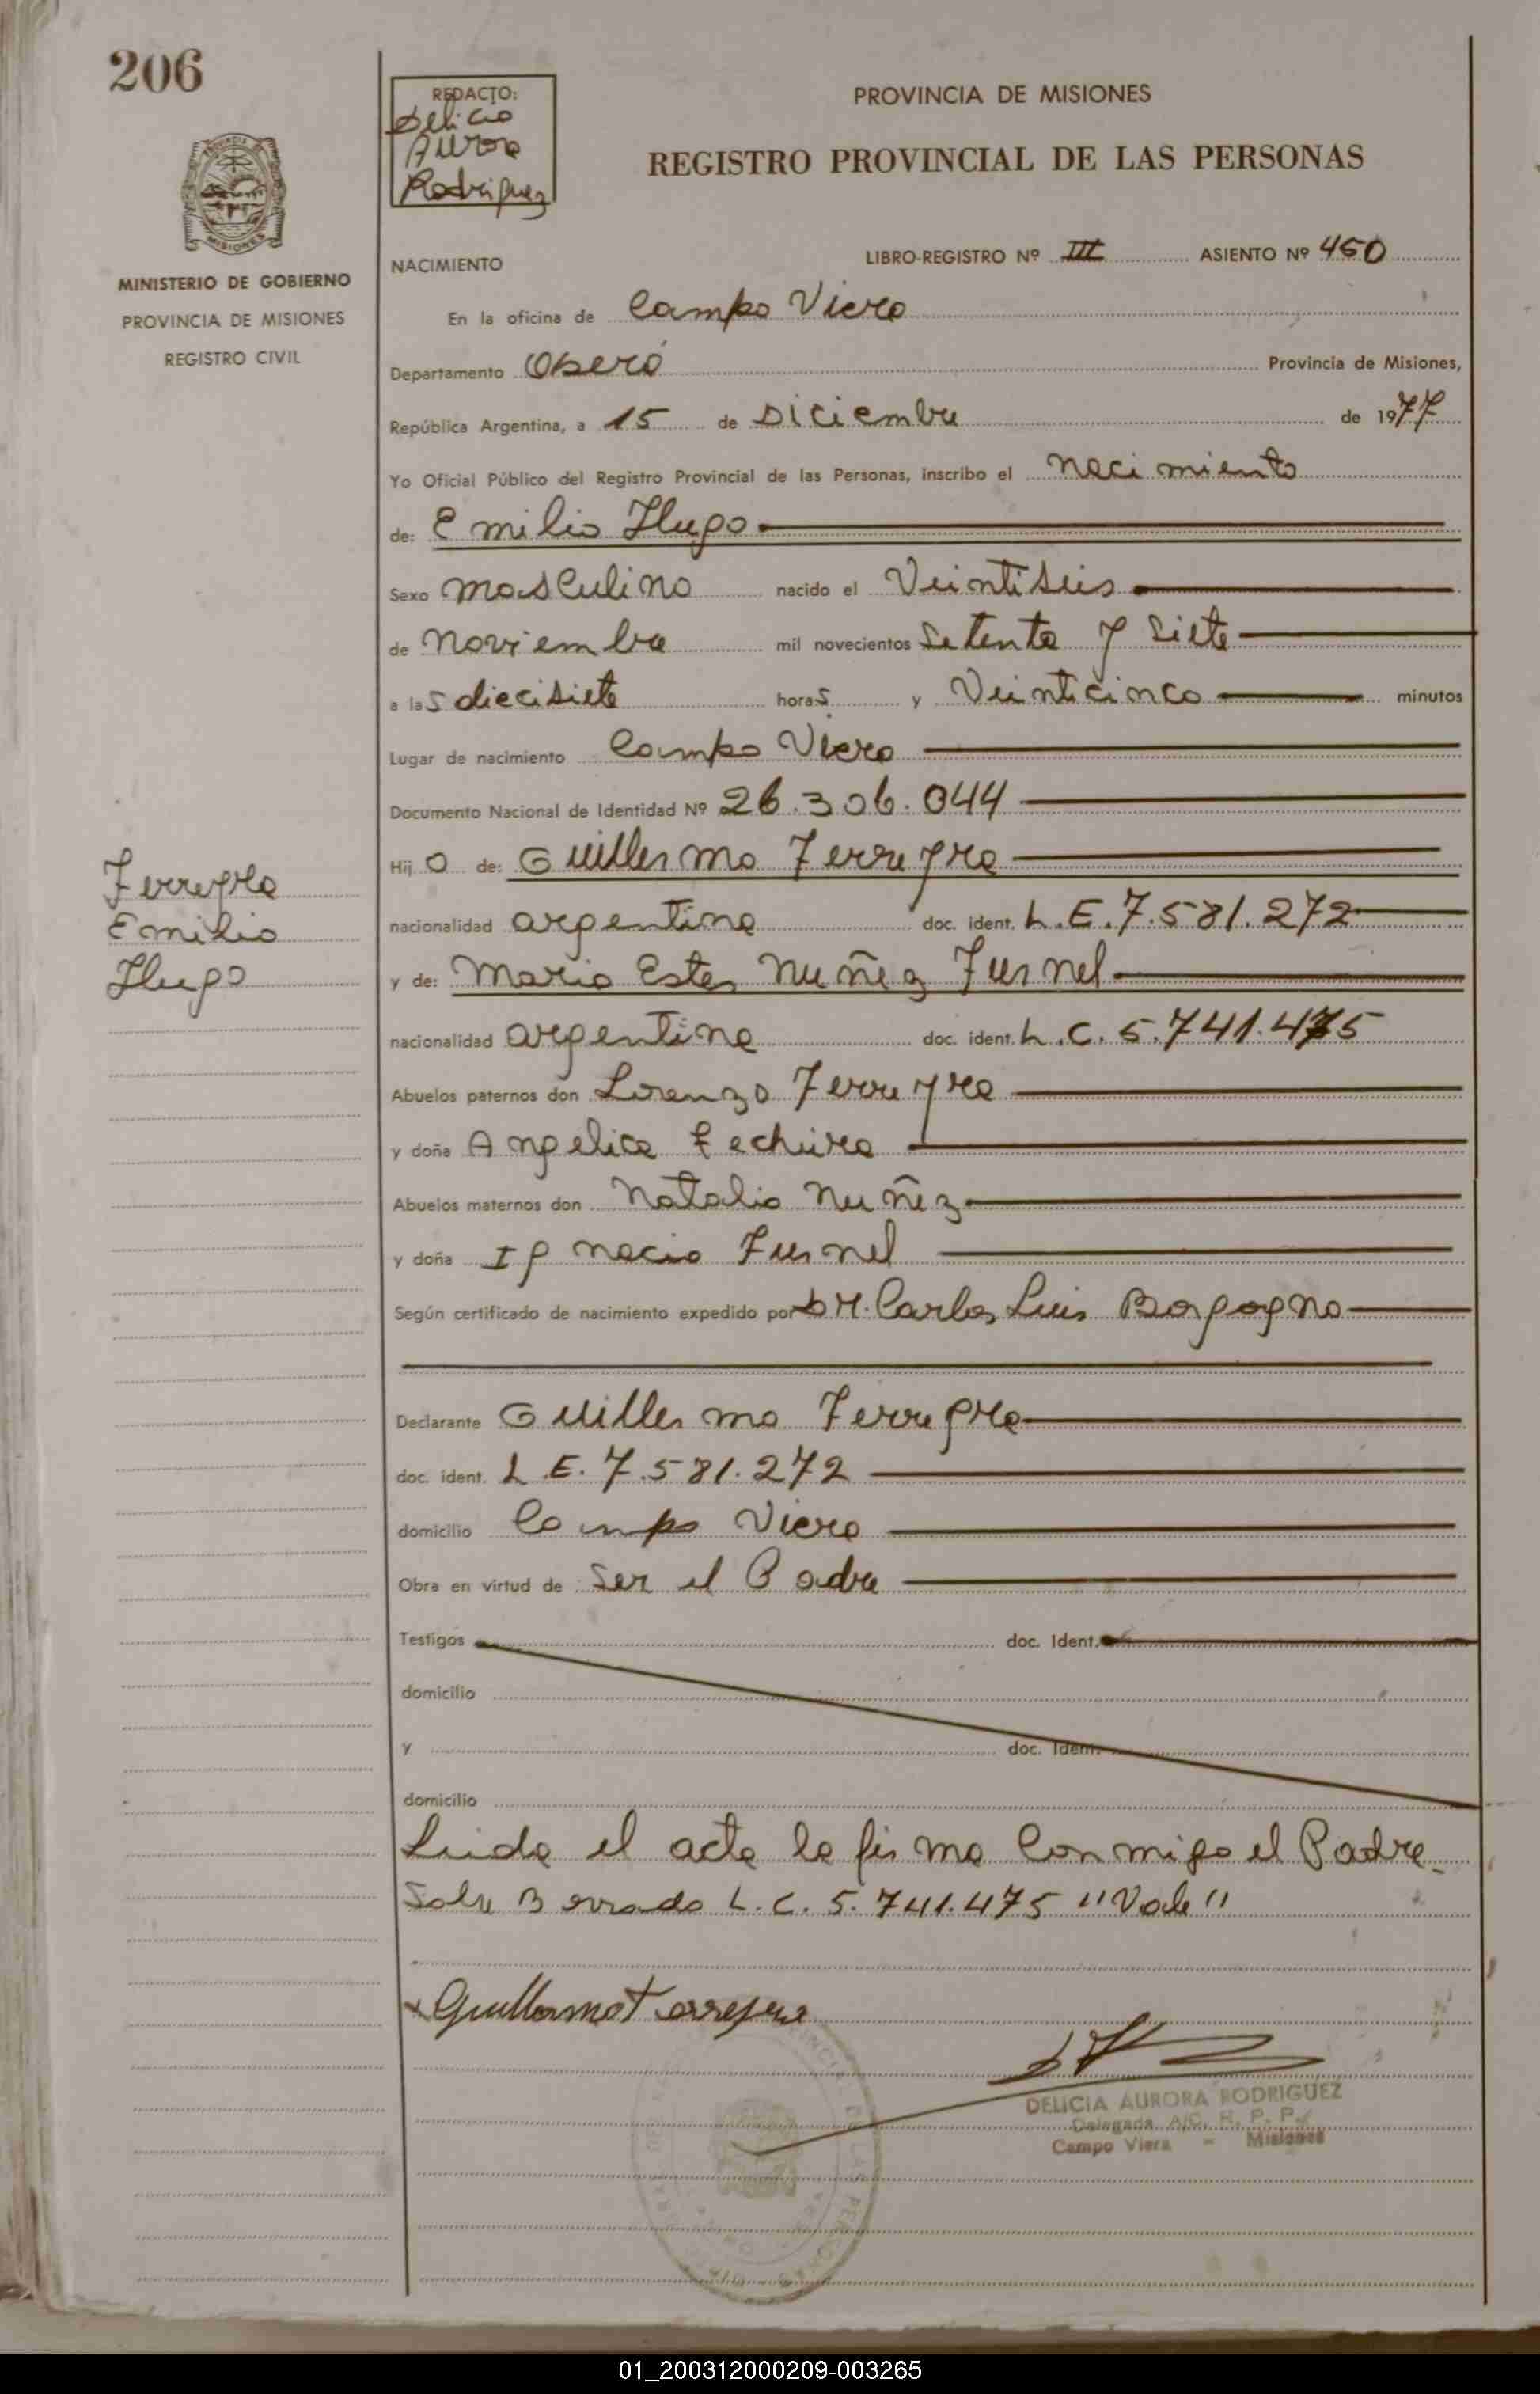 206
REDACTO:
Delicia
Aurora
Rodriguez
PROVINCIA DE MISIONES
REGISTRO PROVINCIAL DE LAS PERSONAS
MINISTERIO DE GOBIERNO
PROVINCIA DE MISIONES
REGISTRO CIVIL
NACIMIENTO
LIBRO-REGISTRO Nº III ASIENTO Nº 450
En la oficina de Campo Viera
Departamento Oberá Provincia de Misiones,
República Argentina, a 15 de Diciembre de 1977
Yo Oficial Público del Registro Provincial de las Personas, inscribo el nacimiento
de: Emilio Hugo
Sexo masculino nacido el Veintiseis
de noviembre mil novecientos Setenta y siete
a las diecisiete horas y Veinticinco minutos
Lugar de nacimiento Campo Viera
Documento Nacional de Identidad Nº 26.306.044
Hijo de: Guillermo Ferreyra
Ferreyra
Emilio
Hugo
nacionalidad argentina doc. ident. L.E. 7.581.272
y de: Maria Ester Nuñez Furnel
nacionalidad argentina doc. ident. L.C. 5.741.475
Abuelos paternos don Lorenzo Ferreyra
y doña Angelica
Abuelos maternos don Natalio Nuñez
y doña Ignacia Furnel
Según certificado de nacimiento expedido por Dr. Carlos Luis Borgogno
Declarante Guillermo Ferreyra
doc. ident. L.E. 7.581.272
domicilio Campo Viera
Obra en virtud de Ser el Padre
Testigos doc. Ident.
domicilio
y doc. Ident.
domicilio
Leida el acta la firma Conmigo el Padre.
Sobre Borrado L.C. 5.741.475 "Vale"
Guillermo Ferreyra
DELICIA AURORA RODRIGUEZ
Delegada A/C. R. P. P.
Campo Viera - Misiones
01_200312000209-003265